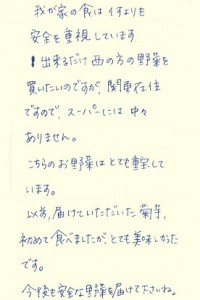 我が家の食は何よりも
安全を重視しています
出来るだけ西の方の野菜を
買いたいのですが、関東在住
ですので、スーパーには中々
ありません。
こちらのお野菜はとても重宝して
います。
以前、届けていただいた菊芋、
初めて食べましたが、とても美味しかった
です。
今後も安全な野菜を届けて下さいね。